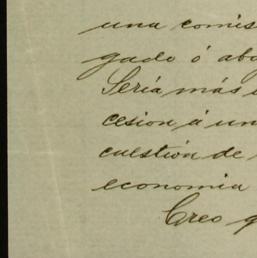 una comis
gado ó abo
Sería más
cesion á un
cuestión de
economia
Creo q